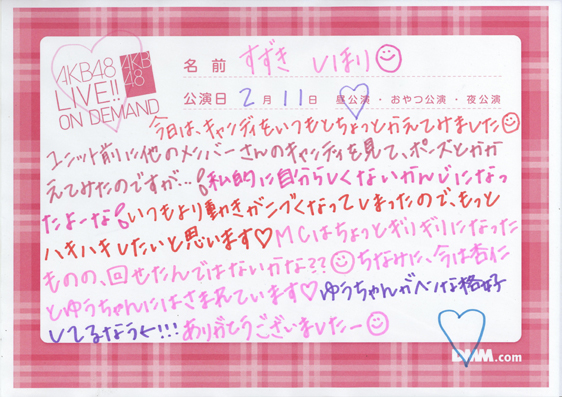 AKB48
LIVE!!
ON DEMAND
AKB
48
名前 すずき しほり
公演日 2月11日 昼公演・おやつ公演・夜公演
今日は、キャンディをいつもとちょっとかえてみました
ユニット前に他のメンバーさんのキャンディを見て、ポーズとかか
えてみたのですが…私的に自分らしくないかんじになっ
たよーな いつもより動きがニブくなってしまったので、もっと
ハキハキしたいと思います♡MCはちょっとギリギリになった
ものの、回せたんではないかな??ちなみに、今は杏に
とゆうちゃんにはさまれています♡ゆうちゃんがヘンな格好
してるなうぃ!!!ありがとうございましたー
DMM.com